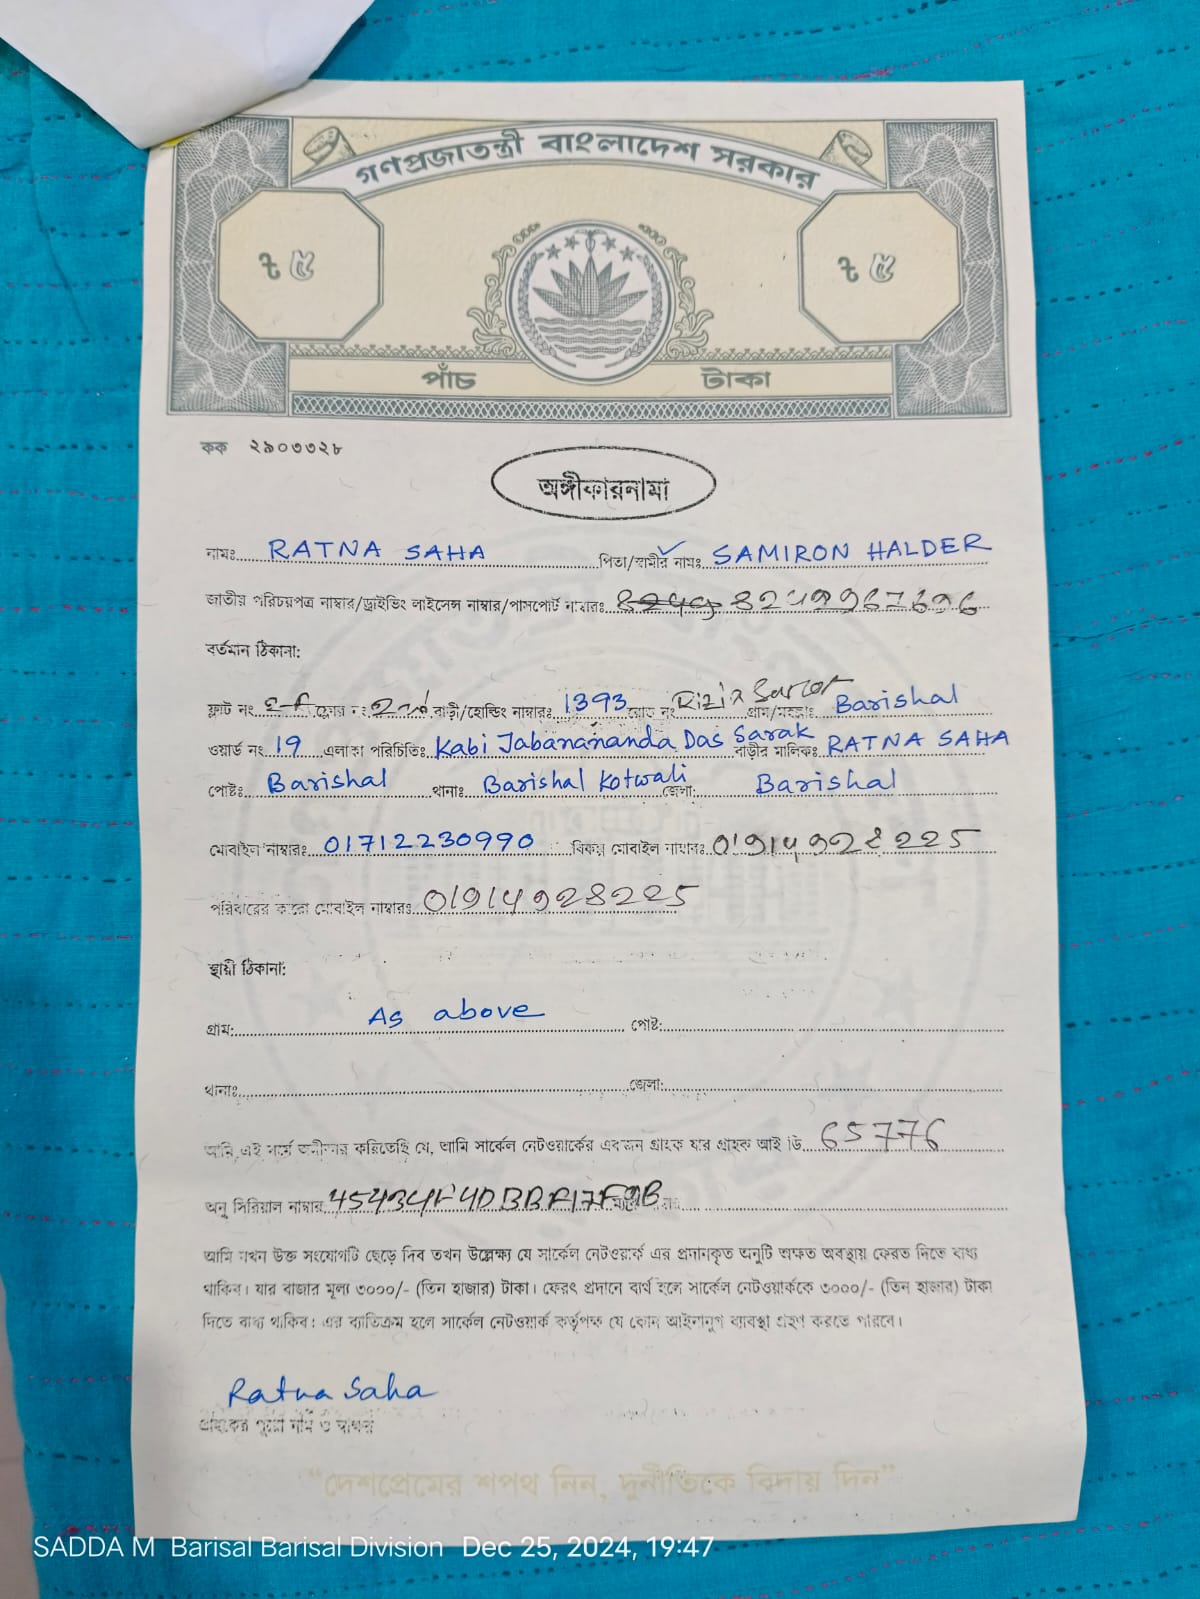 গণপ্রজাতন্ত্রী বাংলাদেশ সরকার
৳ ৫ ৳ ৫
পাঁচ টাকা
কক ২৯০৩৩২৮
অঙ্গীকারনামা
নামঃ RATNA SAHA পিতা/স্বামীর নামঃ SAMIRON HALDER
জাতীয় পরিচয়পত্র নাম্বার/ড্রাইভিং লাইসেন্স নাম্বার/পাসপোর্ট নাম্বারঃ
বর্তমান ঠিকানা:
ফ্লাট নং ফ্লোর নং 2nd বাড়ী/হোল্ডিং নাম্বারঃ 1393 রোড নং গ্রাম/মহল্লাঃ Barishal
ওয়ার্ড নং 19 এলাকা পরিচিতিঃ Kabi Jabanananda Das Sarak বাড়ীর মালিকঃ RATNA SAHA
পোষ্টঃ Barishal থানাঃ Barishal Kotwali জেলা: Barishal
মোবাইল নাম্বারঃ 01712230990 বিকল্প মোবাইল নাম্বারঃ
পরিবারের কারো মোবাইল নাম্বারঃ 01914928225
স্থায়ী ঠিকানা:
গ্রাম: As above পোষ্ট:
থানাঃ জেলা:
আমি এই মর্মে অঙ্গীকার করিতেছি যে, আমি সার্কেল নেটওয়ার্কের একজন গ্রাহক যার গ্রাহক আই ডি 65776
অনু সিরিয়াল নাম্বার
আমি যখন উক্ত সংযোগটি ছেড়ে দিব তখন উল্লেক্ষ্য যে সার্কেল নেটওয়ার্ক এর প্রদানকৃত অনুটি অক্ষত অবস্থায় ফেরত দিতে বাধ্য
থাকিব। যার বাজার মূল্য ৩০০০/- (তিন হাজার) টাকা। ফেরৎ প্রদানে ব্যর্থ হলে সার্কেল নেটওয়ার্ককে ৩০০০/- (তিন হাজার) টাকা
দিতে বাধ্য থাকিব। এর ব্যতিক্রম হলে সার্কেল নেটওয়ার্ক কর্তৃপক্ষ যে কোন আইনানুগ ব্যবস্থা গ্রহণ করতে পারবে।
Ratna Saha
গ্রাহকের পুরো নাম ও স্বাক্ষর
"দেশপ্রেমের শপথ নিন, দুর্নীতিকে বিদায় দিন"
SADDA M Barisal Barisal Division Dec 25, 2024, 19:47